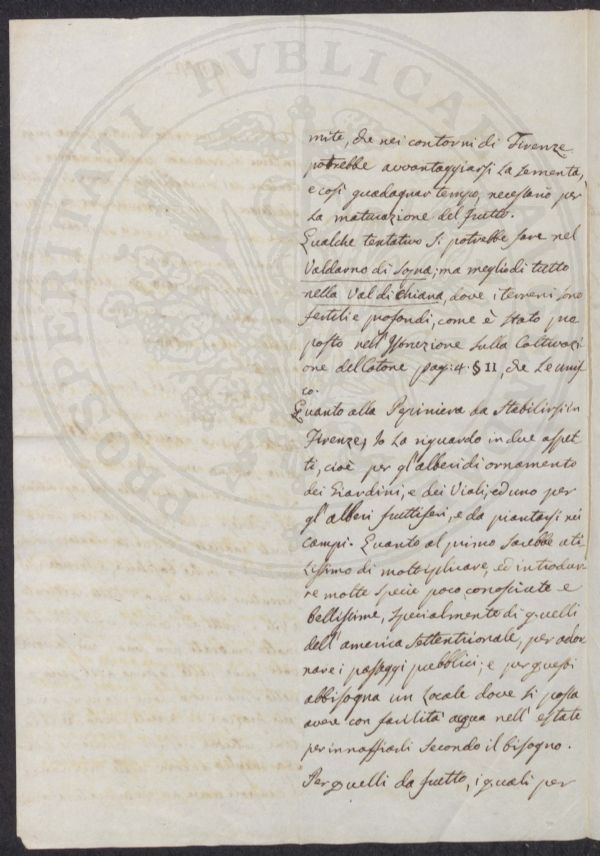 PROSPERITATI PUBLICAE
mite, che nei contorni di Firenze
potrebbe avvantaggiarsi la sementa,
e così guadagnar tempo, necessario per
la maturazione del frutto.
Qualche tentativo si potrebbe fare nel
Valdarno di sopra; ma meglio di tutto
nella Val di Chiana, dove i terreni sono
fertili e profondi, come è stato pro
posto nell' Istruzione sulla Coltivazi
one del Cotone pag: 4. § II, che le unis
co.
Quanto alla Pepiniera da stabilirsi in
Firenze, Io la riguardo in due aspet
ti, cioè per gl'alberi di ornamento
dei Giardini, e dei Viali, ed uno per
gl'alberi fruttiferi, e da piantarsi nei
campi. Quanto al primo sarebbe uti
lissimo di moltiplicare, ed introdur
re molte specie poco conosciute e
bellissime, specialmente di quelli
dell'america settentrionale, per ador
nare i passeggi pubblici; e per questi
abbisogna un Locale dove si possa
avere con facilità acqua nell'estate
per innaffiarli secondo il bisogno.
Per quelli da frutto, i quali per